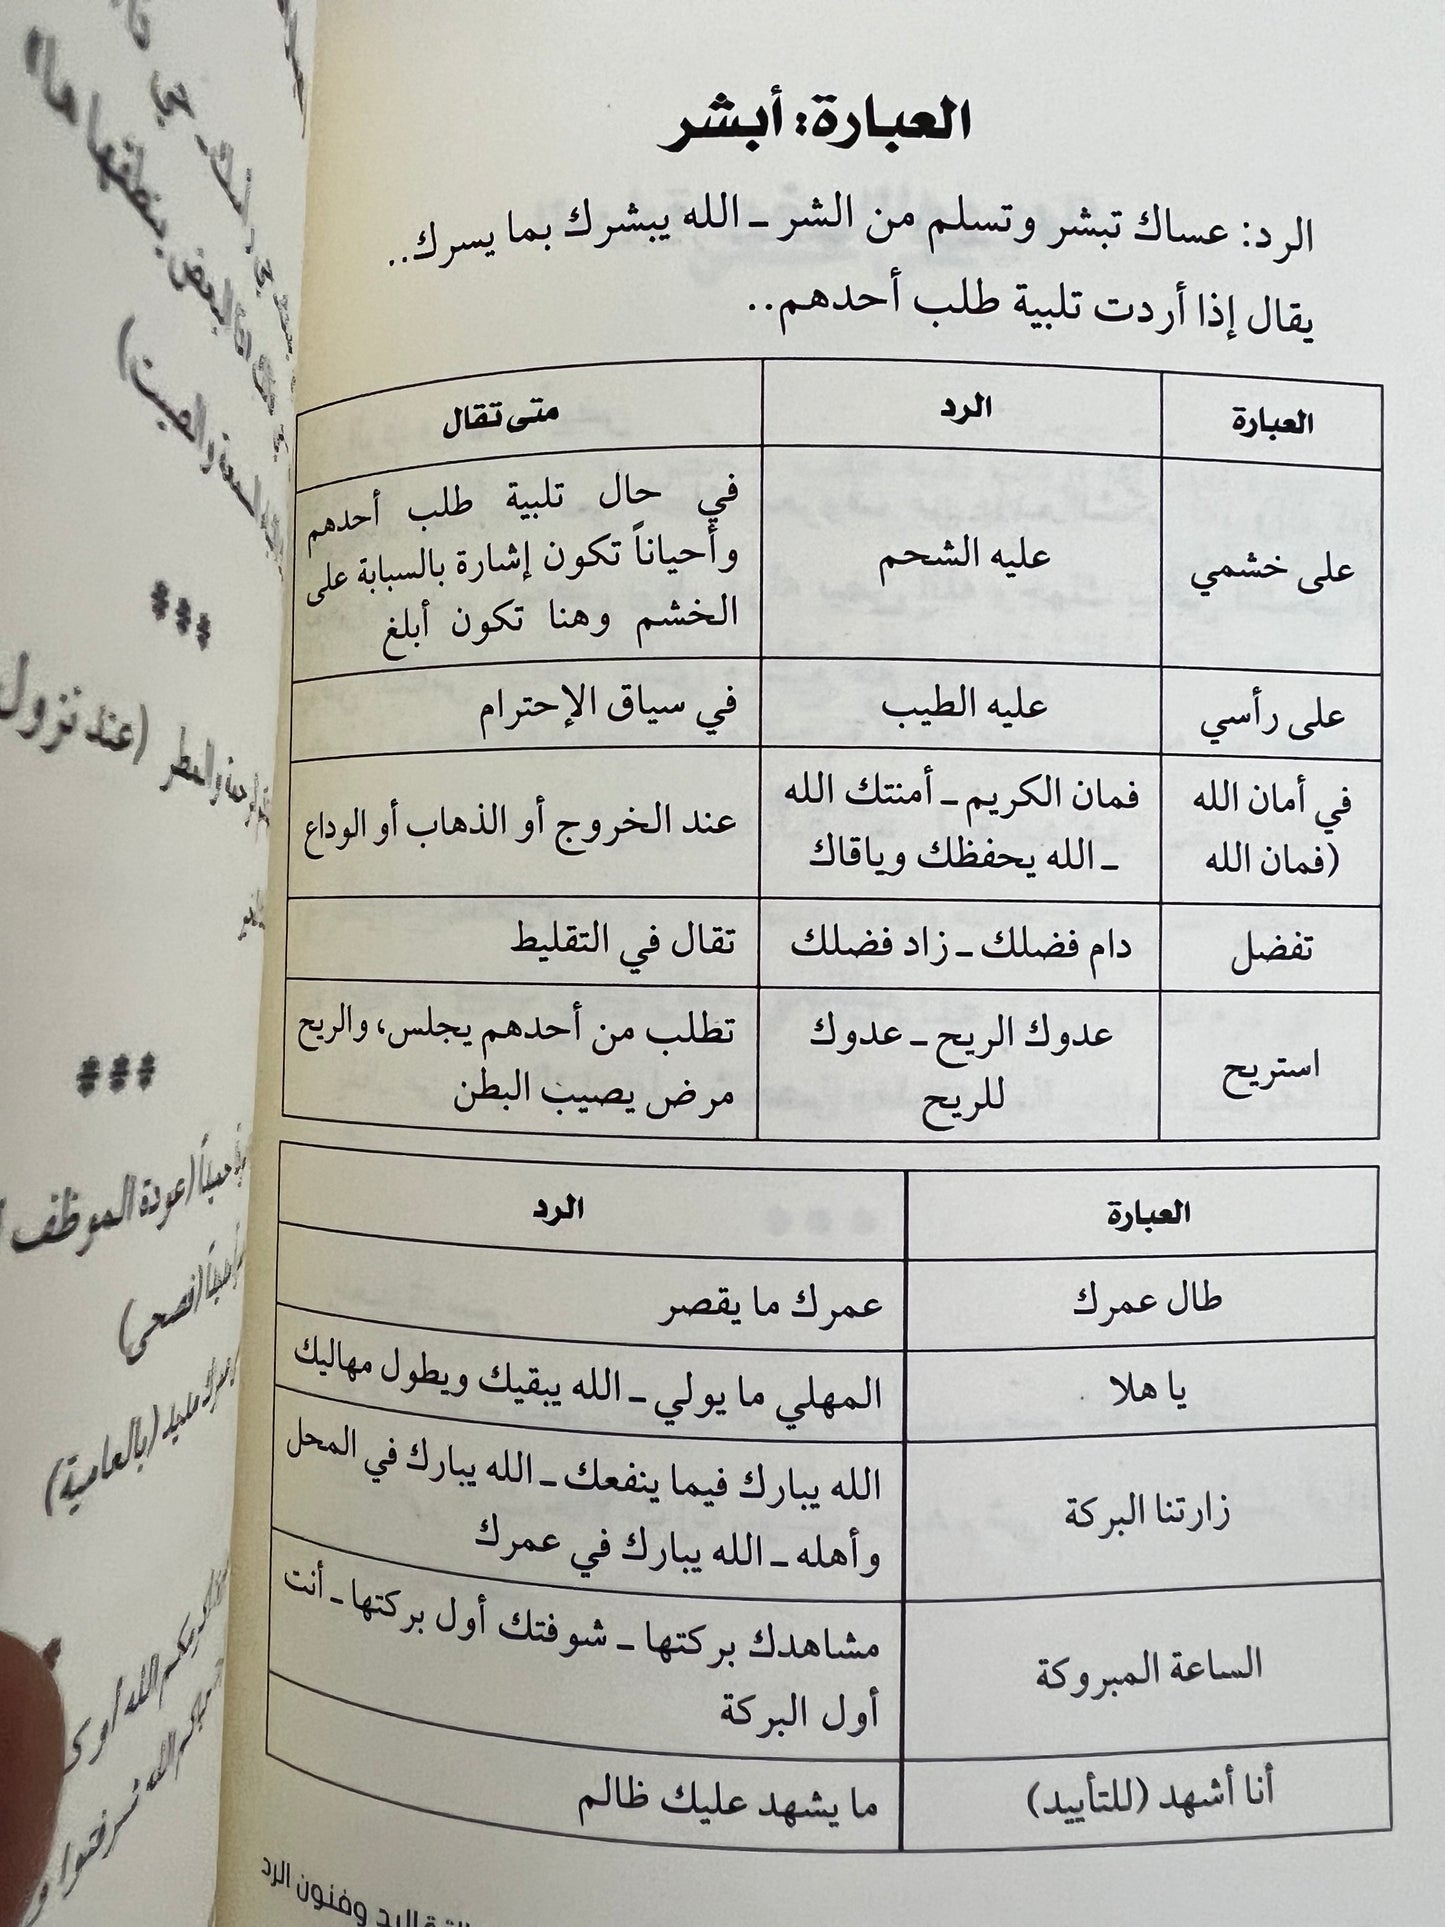 العبارة: أبشر
الرد: عساك تبشر وتسلم من الشر ـ الله يبشرك بما يسرك..
يقال إذا أردت تلبية طلب أحدهم..
العبارة الرد متى تقال
على خشمي عليه الشحم في حال تلبية طلب أحدهم
وأحياناً تكون إشارة بالسبابة على
الخشم وهنا تكون أبلغ
على رأسي عليه الطيب في سياق الإحترام
في أمان الله فمان الكريم ـ أمنتك الله عند الخروج أو الذهاب أو الوداع
(فمان الله ـ الله يحفظك وياقاك
تفضل دام فضلك ـ زاد فضلك تقال في التقليط
استريح عدوك الريح ـ عدوك تطلب من أحدهم يجلس، والريح
للريح مرض يصيب البطن
العبارة الرد
طال عمرك عمرك ما يقصر
يا هلا المهلي ما يولي ـ الله يبقيك ويطول مهاليك
زارتنا البركة الله يبارك فيما ينفعك ـ الله يبارك في المحل
وأهله ـ الله يبارك في عمرك
الساعة المبروكة مشاهدك بركتها ـ شوفتك أول بركتها ـ أنت
أول البركة
أنا أشهد (للتأييد) ما يشهد عليك ظالم
وفنون الرد
***
(عند نزول
***
(عودة الموظف
(فصحى)
(بالعامية)